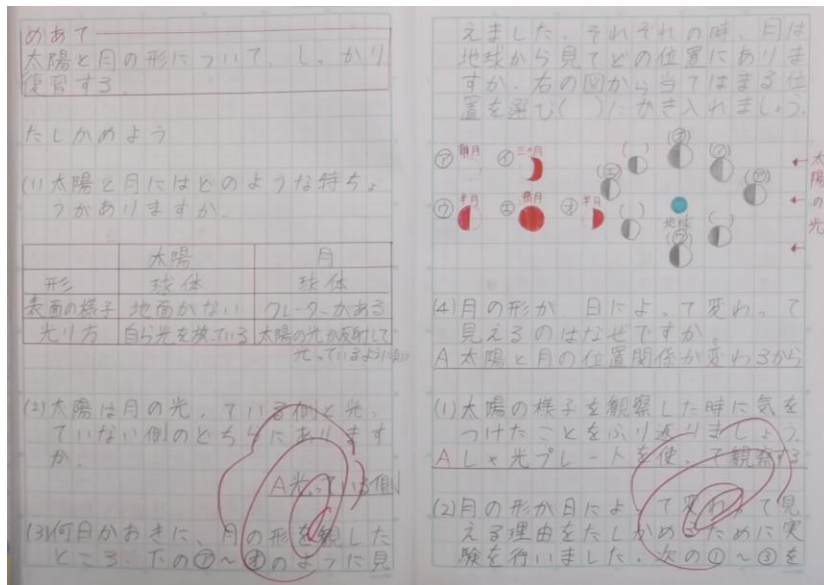 めあて
太陽と月の形について、しっかり
復習する。
たしかめよう
(1)太陽と月にはどのような特ちょ
うがありますか。
太陽 月
形 球体 球体
表面の様子 地面がない クレーターがある
光り方 自ら光を放っている 太陽の光が反射して
光っているように
(2)太陽は月の光っている側と光っ
ていない側のどちらにあります
か。
A光っている側
(3)何日かおきに、月の形を観した
ところ、下の㋐~㋔のように見
えました。それぞれの時、月は
地球から見てどの位置にありま
すか。右の図から当てはまる位
置を選び( )にかき入れましょう。
㋐ 新月 ㋑ 三日月
㋒ 半月 ㋓ 満月 ㋔ 半月
地球
太陽の光
(4)月の形が、日によって変わって
見えるのはなぜですか。
A太陽と月の位置関係が変わるから
(1)太陽の様子を観察した時に気を
つけたことをふり返りましょう。
Aしゃ光プレートを使って観察する
(2)月の形が日によって変わって見
える理由をたしかめるために実
験を行いました。次の①~③を